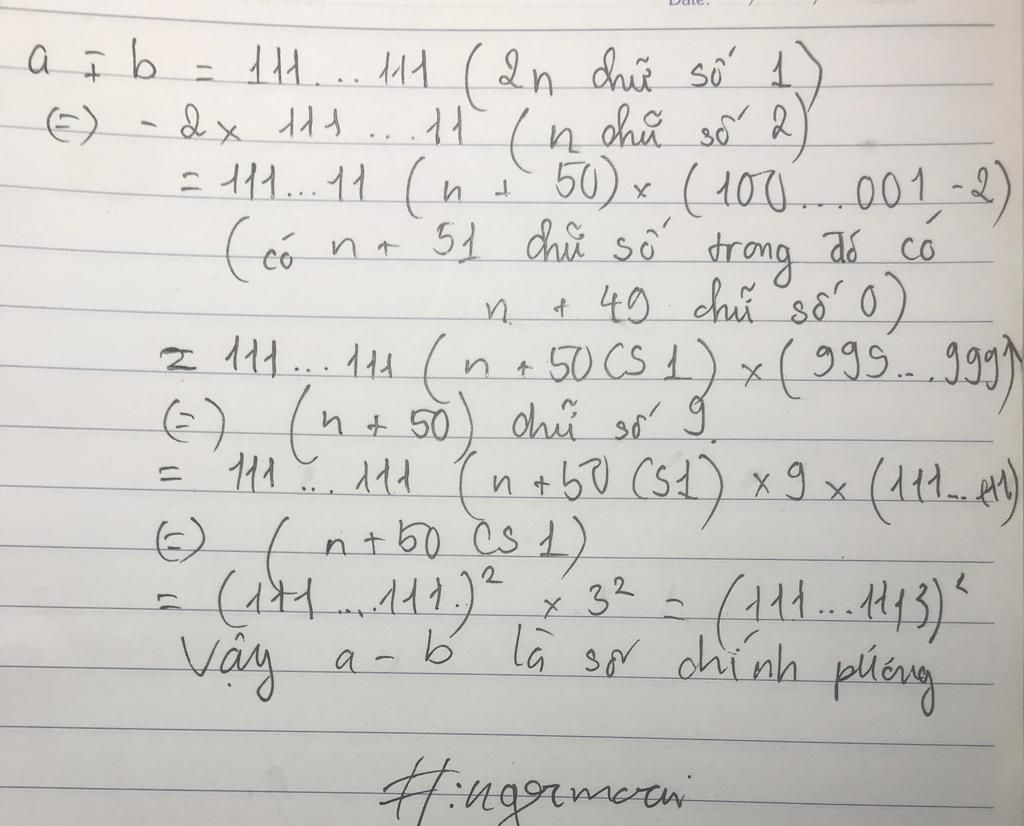 Date:
a ∓ b = 111...111 (2n chữ số 1)
(=) - 2 x 111...11 (n chữ số 2)
= 111...11 (n + 50) x (100...001 - 2)
(có n + 51 chữ số trong đó có
n + 49 chữ số 0)
= 111...111 (n + 50 CS 1) x (999...999)
(=) (n + 50) chữ số 9.
= 111...111 (n + 50 CS1) x 9 x (111...111)
(=) (n + 50 CS 1)
= (111...111.)² x 3² = (111...11,3)²
Vậy a - b là số chính phương